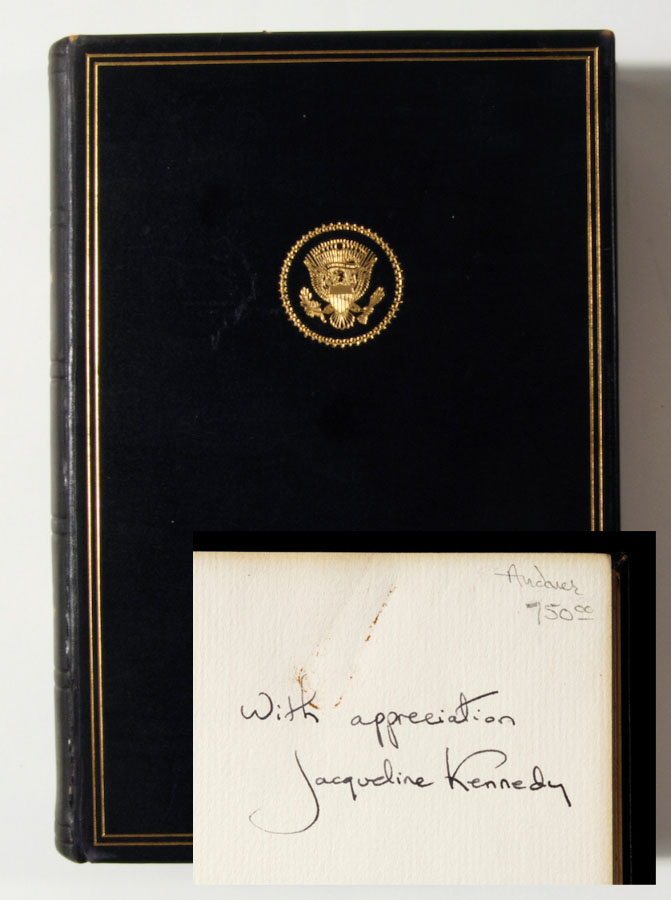 750 00
With appreciation
Jacqueline Kennedy